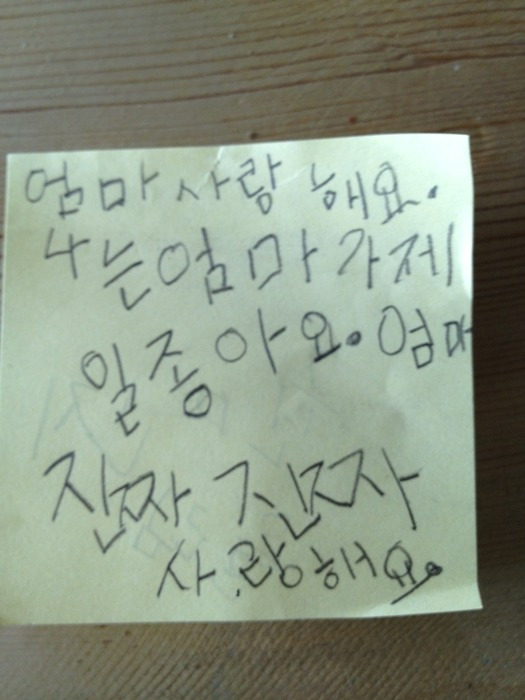 엄마 사랑 해요.
나는 엄마 가제
일 좋아요. 엄마
진짜 진짜
사랑해요.